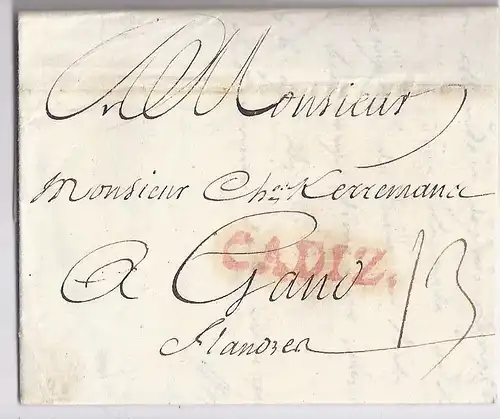 A Monsieur
Monsieur Chs. Kerremans
A Gand
CADIZ.
Flandres
13